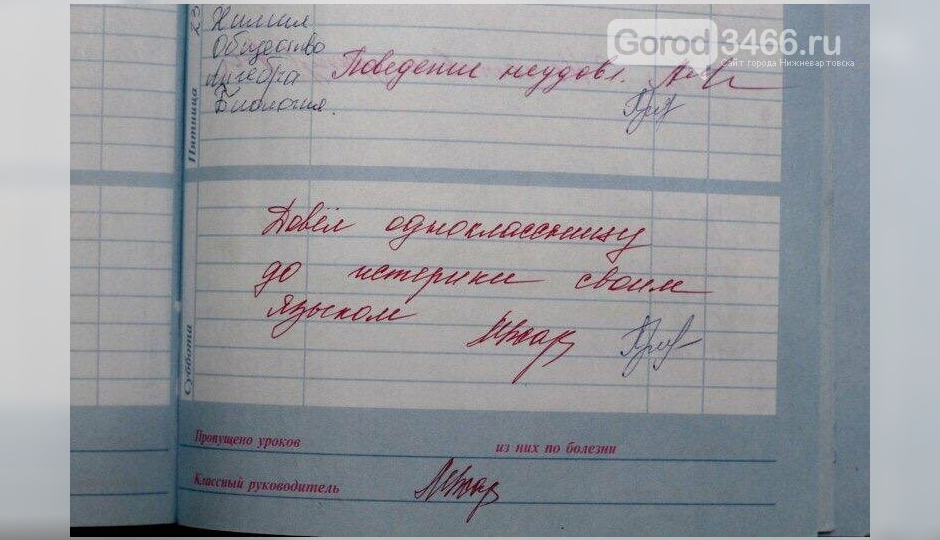 Gorod3466.ru
Сайт города Нижневартовска
Химия
Общество
Алгебра
Поведение неудовл.
Биология.
Пятница
Довёл одноклассницу
до истерики своим
языком
Суббота
Пропущено уроков из них по болезни
Классный руководитель